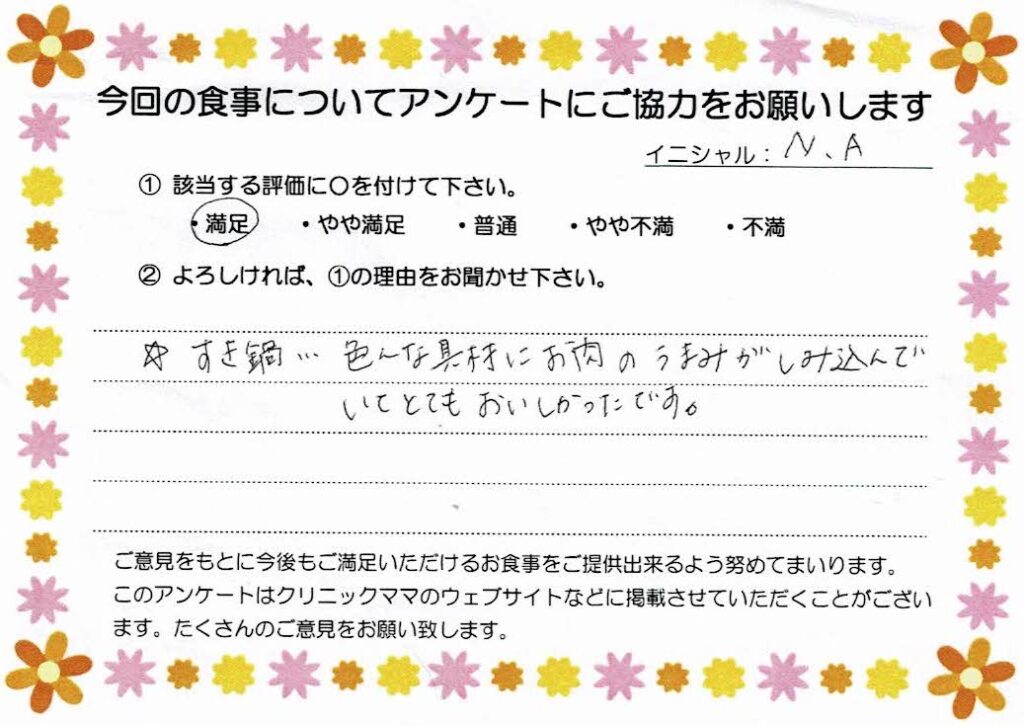 今回の食事についてアンケートにご協力をお願いします
イニシャル： N、A
① 該当する評価に〇を付けて下さい。
・満足 ・やや満足 ・普通 ・やや不満 ・不満
② よろしければ、①の理由をお聞かせ下さい。
☆ すき鍋… 色んな具材にお肉のうまみがしみ込んで
いてとてもおいしかったです。
ご意見をもとに今後もご満足いただけるお食事をご提供出来るよう努めてまいります。
このアンケートはクリニックママのウェブサイトなどに掲載させていただくことがござい
ます。たくさんのご意見をお願い致します。